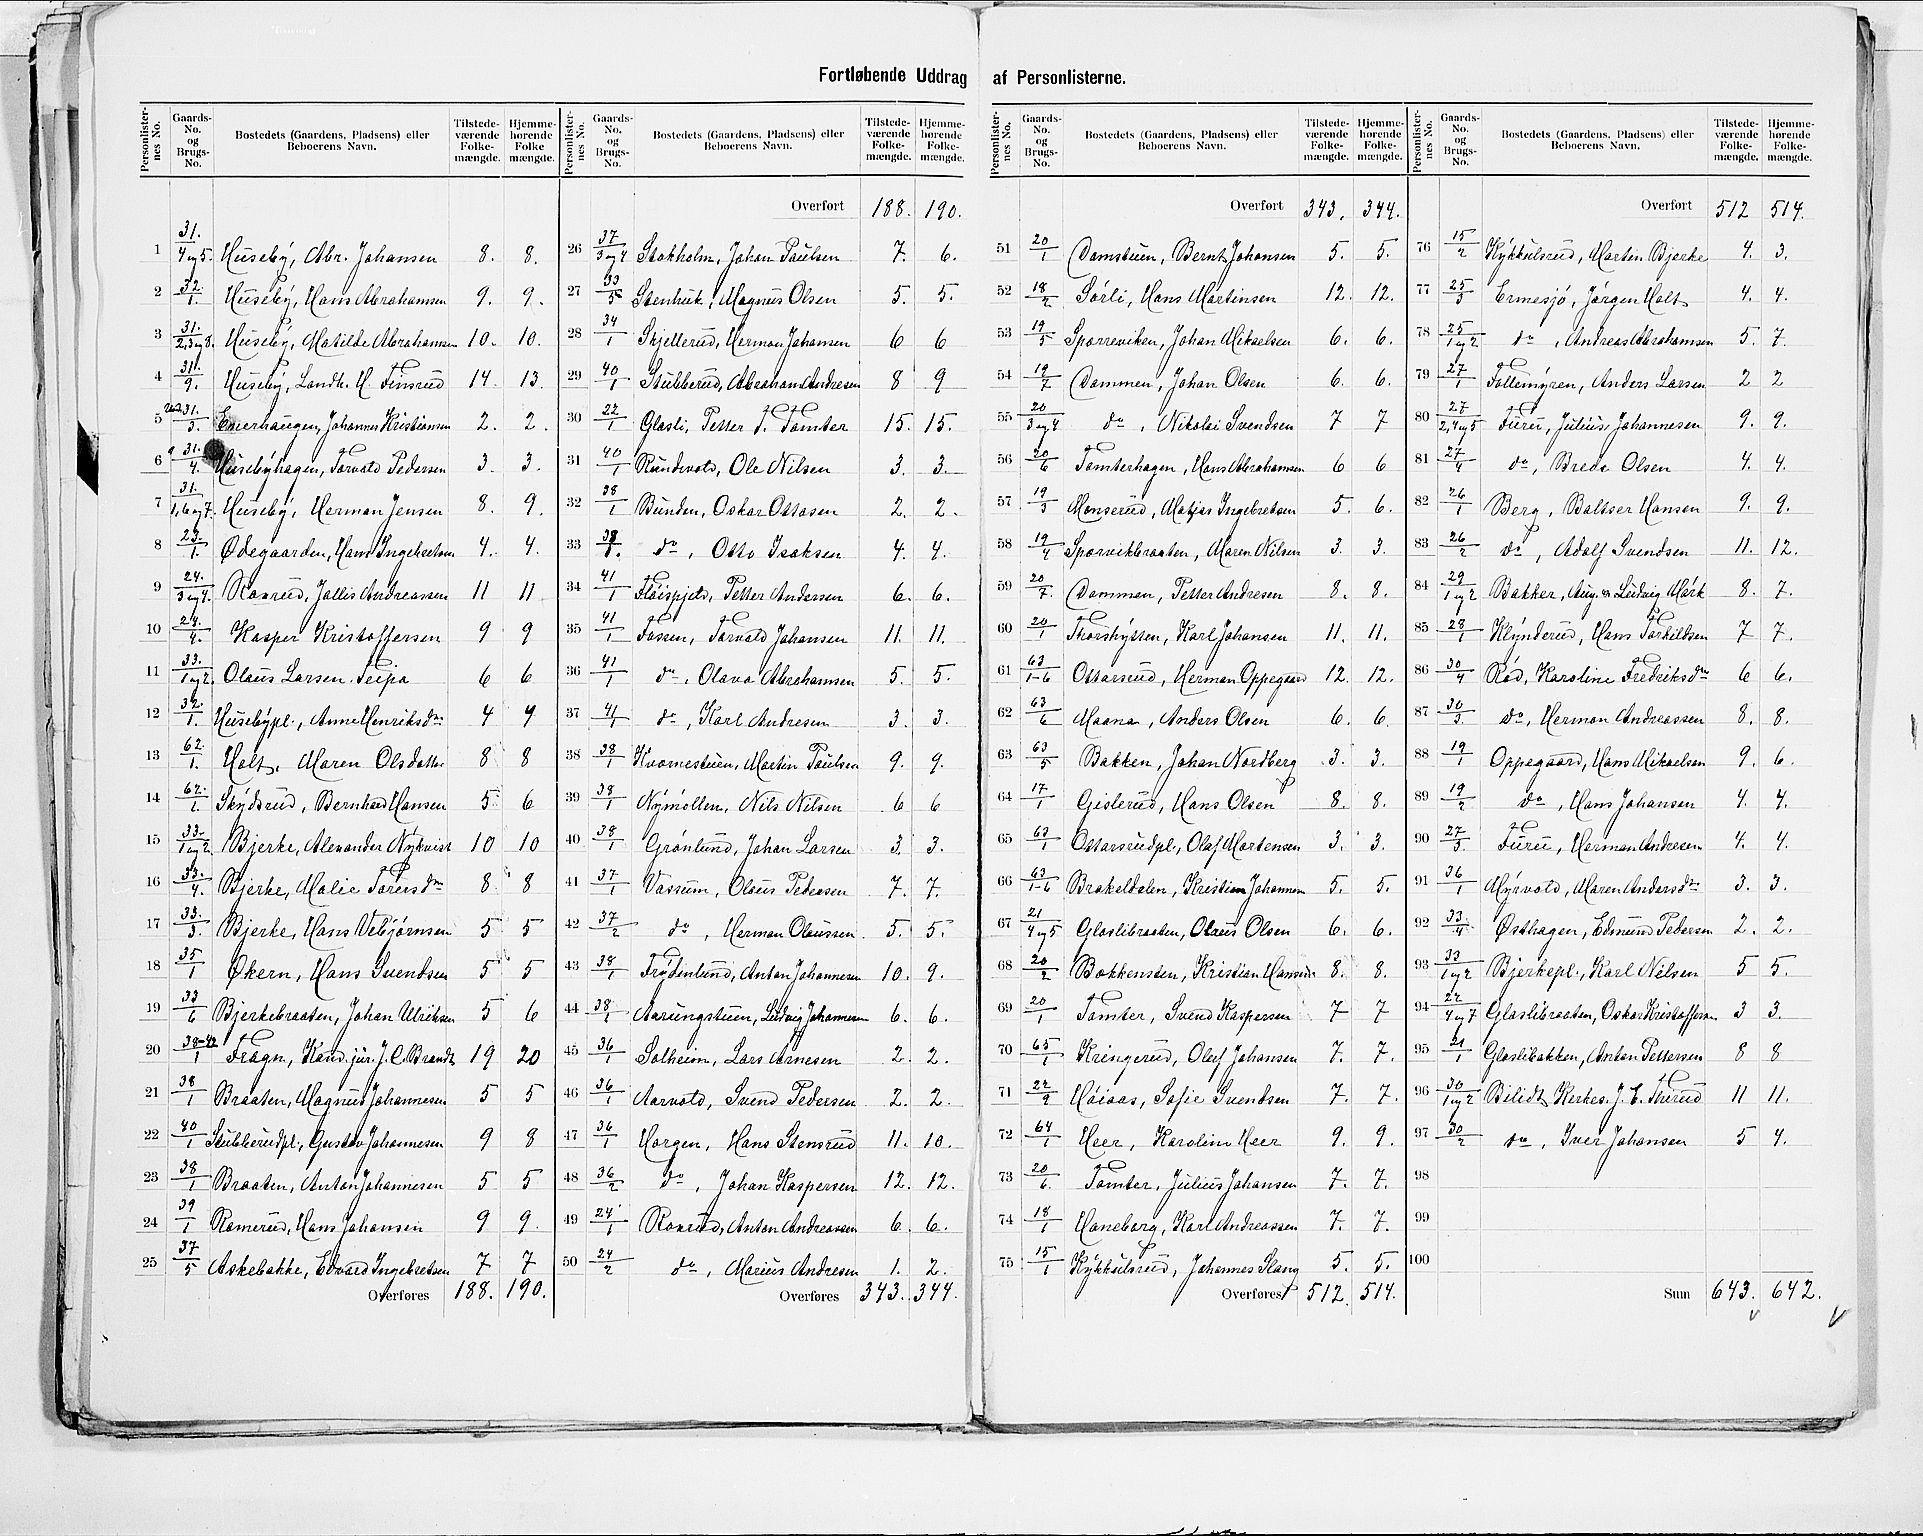 Fortløbende Uddrag af Personlisterne.
Personlister-nes No. Gaards-No. og Brugs-No. Bostedets (Gaardens, Pladsens) eller Beboerens Navn. Tilstede-værende Folke-mængde. Hjemme-hørende Folke mængde.
1 31./4 og 5. Huseby, Abr. Johansen 8. 8.
2 32./1. Huseby, Hans Abrahamsen 9. 9.
3 31./2,3 og 8. Huseby, Matilde Abrahamsen 10. 10.
4 31./9. Huseby, Landh. H. Finsrud 14. 13.
5 31./3. Enerhaugen, Johannes Kristiansen 2. 2.
6 31./4. Husebyhagen, Torvald Pedersen 3. 3.
7 31./1,6 og 7. Huseby, Herman Jensen 8. 9.
8 23./1. Ødegaarden, Hans Ingebretsen 4. 4.
9 24./3 og 4. Ramrud, Jollis Andreassen 11 11
10 24./4. Kasper Kristoffersen 9 9
11 33./1 og 2. Olaus Larsen Teipa 6 6
12 32./1. Husebypl., Anne Henriksdtr 4 4
13 62./1. Holt, Maren Olsdatter 8 8
14 62./1. Skydsrud, Bernhard Hansen 5 6
15 33./1 og 2 Bjerke, Alexander Nykvist 10 10
16 33./4. Bjerke, Malie Toresdtr 8 8
17 33./3. Bjerke, Hans Vebjørnsen 5 5
18 35/1 Økern, Hans Svendsen 5 5
19 33/6 Bjerkebraaten, Johan Ulriksen 5 6
20 38-42/1 Frogn, Kand. jur. J. C. Brandt 19 20
21 38/1 Braaten, Magnus Johannesen 5 5
22 40/1 Stubberudpl., Gustav Johannesen 9 8
23 38/1 Braaten, Anton Johannesen 5 5
24 39/1 Ramerud, Hans Johansen 9 9.
25 37/5 Askebakke, Edvard Ingebretsen 7 7
Overføres 188. 190.
Personlister-nes No. Gaards-No. og Brugs-No. Bostedets (Gaardens, Pladsens) eller Beboerens Navn. Tilstede-værende Folke-mængde. Hjemme-hørende Folke-mængde.
Overført 188. 190.
26 37/3 og 4 Stokholm, Johan Paulsen 7. 6.
27 33/5 Stenhuk, Magnus Olsen 5. 5.
28 34/1 Skjellerud, Herman Johansen 6 6
29 40/1 Stubberud, Abraham Andresen 8 9
30 22/1 Glasli, Petter T. Tomter 15. 15.
31 40/1 Rundvold, Ole Nilsen 3. 3.
32 38/1 Bunden, Oskar Ottosen 2. 2.
33 38/1. do, Otto Isaksen 4. 4.
34 41/1 Fløispjeld, Petter Andersen 6. 6.
35 41/1 Fossen, Torvald Johansen 11. 11.
36 41/1 do, Olava Abrahamsen 5. 5.
37 41/1 do, Karl Andresen 3. 3.
38 38/1 Kvernestuen, Martin Paulsen 9. 9.
39 38/1 Nymollen, Nils Nilsen 6 6
40 38/1 Grønlund, Johan Larsen 3. 3.
41 37/1 Vassum, Olaus Pedersen 7. 7.
42 37/2 do, Herman Olaussen 5. 5.
43 38/1 Frydenlund, Anton Johannesen 10. 9.
44 38/1 Aarungstuen, Ludvig Johannesen 6. 6.
45 36/1 Solheim, Lars Arnesen 2. 2.
46 36/1 Aarvold, Svend Pedersen 2. 2.
47 36/1 Horgen, Hans Stensrud 11. 10.
48 36/2 do, Johan Kaspersen 12. 12.
49 24/1 Ramrud, Anton Andreassen 6. 6.
50 24/2 do, Marius Andresen 1. 2.
Overføres 343. 344.
Personlister-nes No. Gaards-No. og Brugs-No. Bostedets (Gaardens, Pladsens) eller Beboerens Navn. Tilstede-værende Folke-mængde. Hjemme-hørende Folke-mængde.
Overført 343. 344.
51 20/1 Damstuen, Bernt Johansen 5. 5.
52 18/2 Sørli, Hans Martinsen 12. 12.
53 19/5 Sporreviken, Johan Mikaelsen 6. 6.
54 19/7 Dammen, Johan Olsen 6. 6.
55 20/3 og 4 do, Nikolai Svendsen 7 7
56 20/6 Tomterhagen, Hans Abrahamsen 6 6
57 19/3 Monserud, Matias Ingebretsen 5. 6.
58 19/4 Sporvikbraaten, Maren Nilsen 3. 3.
59 20/7. Dammen, Petter Andresen 8. 8.
60 20/1 Thorshytten, Karl Johansen 11. 11.
61 63/1-6 Ottarsrud, Herman Oppegaard 12. 12.
62 63/6 Maana, Anders Olsen 6. 6.
63 63/5 Bakken, Johan Nordberg 3. 3.
64 17/1 Gislerud, Hans Olsen 8. 8.
65 63/1 Ottarsrudpl., Olaf Mortensen 3. 3.
66 63/1-6 Brakeldalen, Kristian Johannesen 5. 5.
67 21/4 og 5 Glaslibraaten, Olaus Olsen 6. 6.
68 20/2 Bakkensten, Kristian Hansen 8. 8.
69 20/1 Tomter, Svend Kaspersen 7 7
70 65/1 Kringerud, Oluf Johansen 7. 7.
71 22/9 Høiaas, Sofie Svendsen 7. 7.
72 64/1 Heer, Karoline Heer 9. 9.
73 20/6. Tomter, Julius Johansen 7. 7.
74 18/1 Haneborg, Karl Andreassen 7. 7.
75 15/1 Kykkulsrud, Johannes Slang 5. 5.
Overføres 512. 514.
Personlister-nes No. Gaards-No. og Brugs-No. Bostedets (Gaardens, Pladsens) eller Beboerens Navn. Tilstede-værende Folke-mængde. Hjemme-hørende Folke-mængde.
Overført 512 514.
76 15/2 Kykkulsrud, Martin Bjerke 4. 3.
77 25/3 Ermesjø, Jørgen Holt 4. 4.
78 25/1 og 2 do, Andreas Abrahamsen 5. 7.
79 27/1 Follemyren, Anders Larsen 2 2
80 27/2,4 og 5 Furu, Julius Johannesen 9. 9.
81 27/4 do, Brede Olsen 4. 4.
82 26/1 Berg, Baltser Hansen 9. 9.
83 26/2 do, Adolf Svendsen 11. 12.
84 29/1 og 2 Bakker, Aug. & Ludvig Mørk 8. 7.
85 28/1 Klynderud, Hans Torkildsen 7 7.
86 30/4 Rød, Karoline Fredriksdtr 6 6.
87 30/3. do, Herman Andreassen 8. 8.
88 19/1 Oppegaard, Hans Mikaelsen 9. 6.
89 19/2 do, Hans Johansen 4. 4.
90 27/3 Furu, Herman Andresen 4. 4.
91 36/1 Myrvold, Maren Andersdtr 3. 3.
92 33/4 Østhagen, Edmund Pedersen 2. 2.
93 33/1 og 2 Bjerkepl., Karl Nilsen 5 5.
94 22/4 og 7 Glaslibraaten, Oskar Kristoffersen 3 3.
95 21/1 Glaslibakken, Anton Pettersen 8 8
96 30/1 og 2 Bilidt, Kirkes. J. E. Thirud 11 11.
97 30/2 do, Iver Johansen 5 4.
98
99
100
Sum 643. 642.